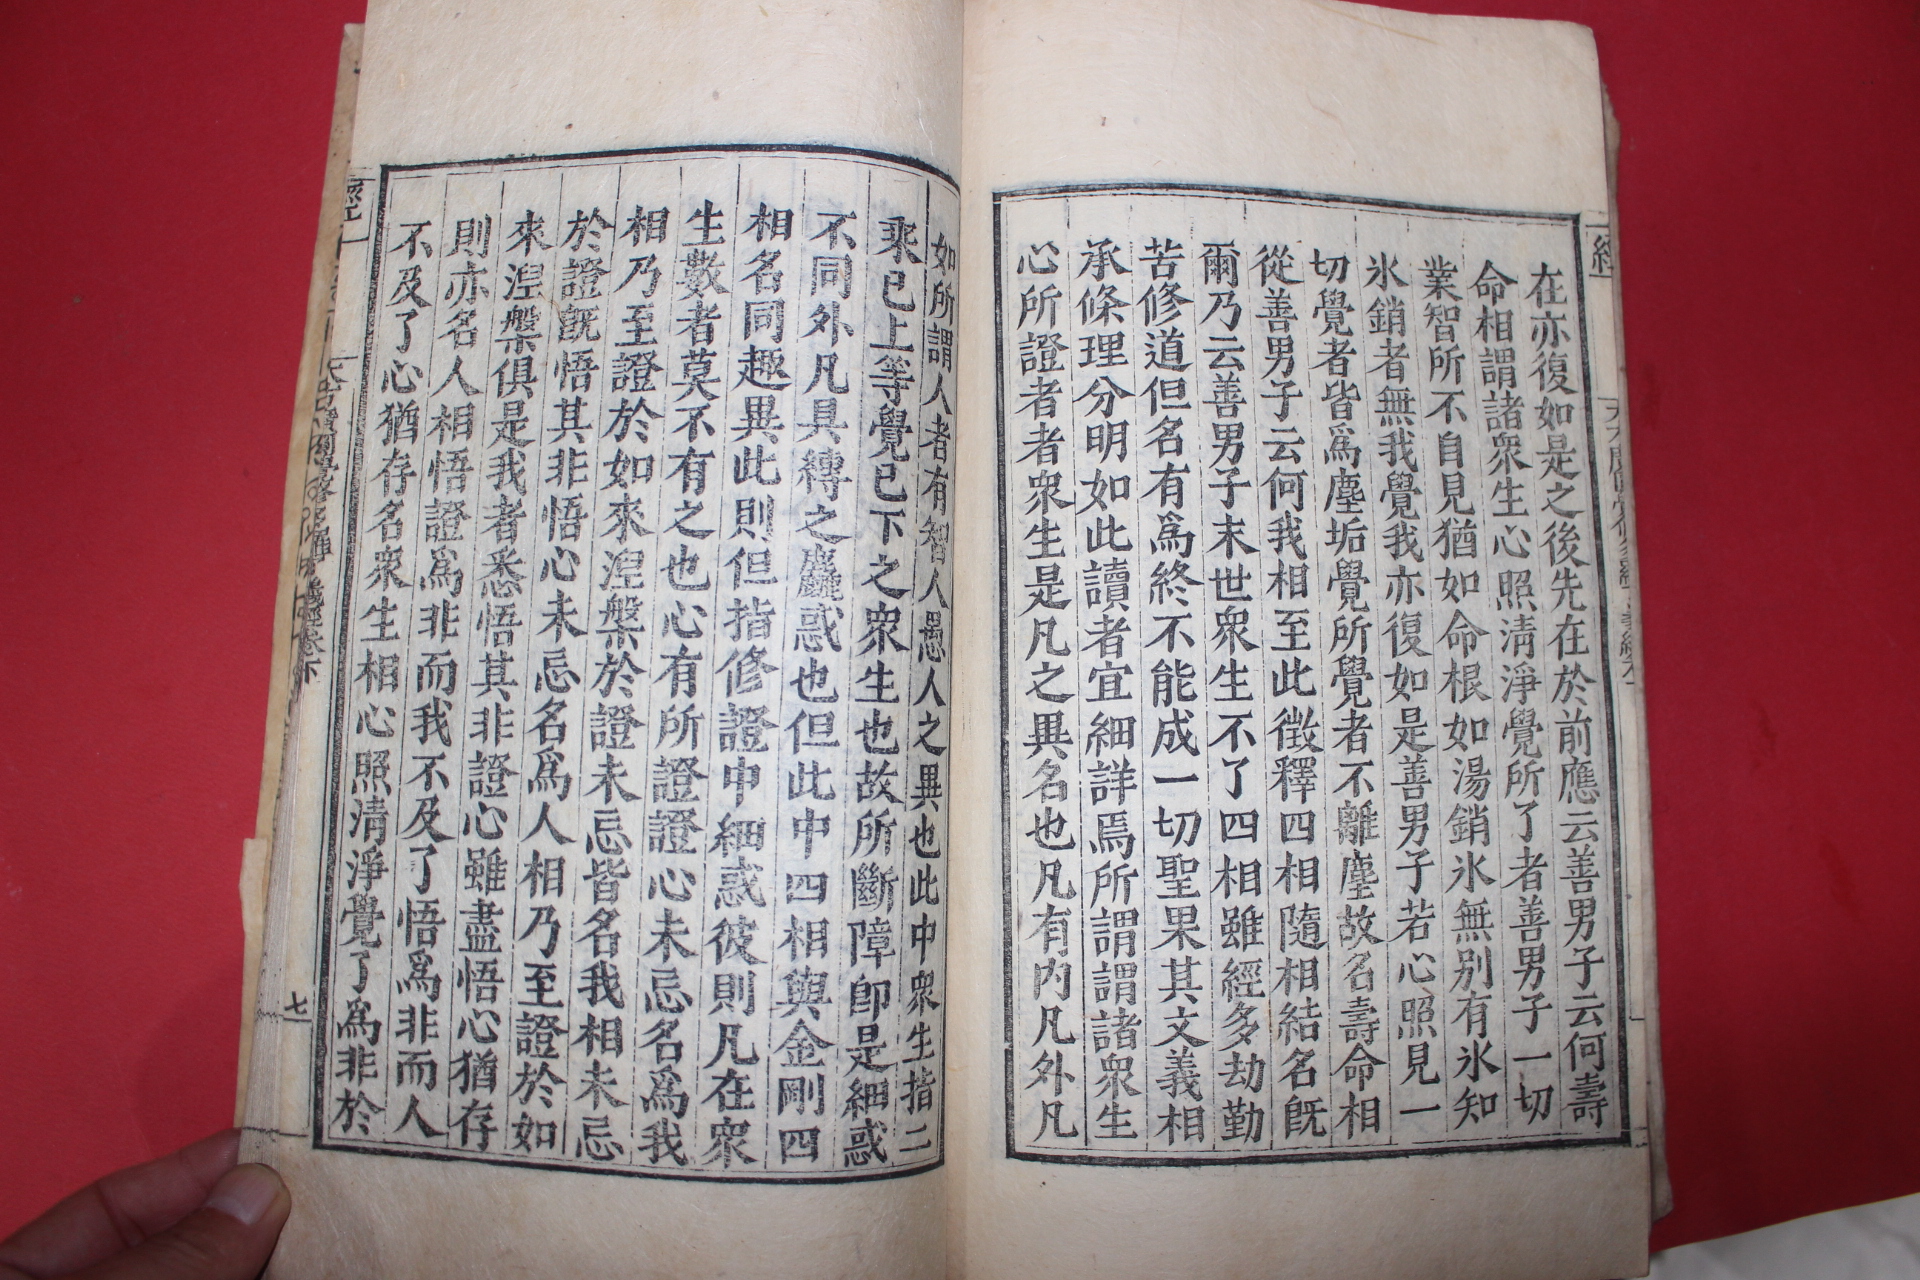 在亦復如是之後先在於前應云善男子云何壽
命相謂諸衆生心照淸淨覺所了者善男子一切
業智所不自見猶如命根如湯銷氷無别有氷知
氷銷者無我覺我亦復如是善男子若心照見一
切覺者皆爲塵垢覺所覺者不離塵故名壽命相
從善男子云何我相至此徵釋四相隨相結名旣
爾乃云善男子末世衆生不了四相雖經多劫勤
苦修道但名有爲終不能成一切聖果其文義相
承條理分明如此讀者宜細詳焉所謂謂諸衆生
心所證者者衆生是凡之異名也凡有内凡外凡
如所謂人者有智人愚人之異也此中衆生指二
乘已上等覺已下之衆生也故所斷障卽是細惑
不同外凡具縛之麤惑也但此中四相與金剛四
相名同趣異此則但指修證中細惑彼則凡在衆
生數者莫不有之也心有所證證心未忘名爲我
相乃至證於如來湼槃於證未忘皆名我相未忘
於證旣悟其非悟心未忘名爲人相乃至證於如
來湼槃俱是我者悉悟其非證心雖盡悟心猶存
則亦名人相悟證爲非而我不及了悟爲非而人
不及了心猶存名衆生相心照清淨覺了爲非於
七